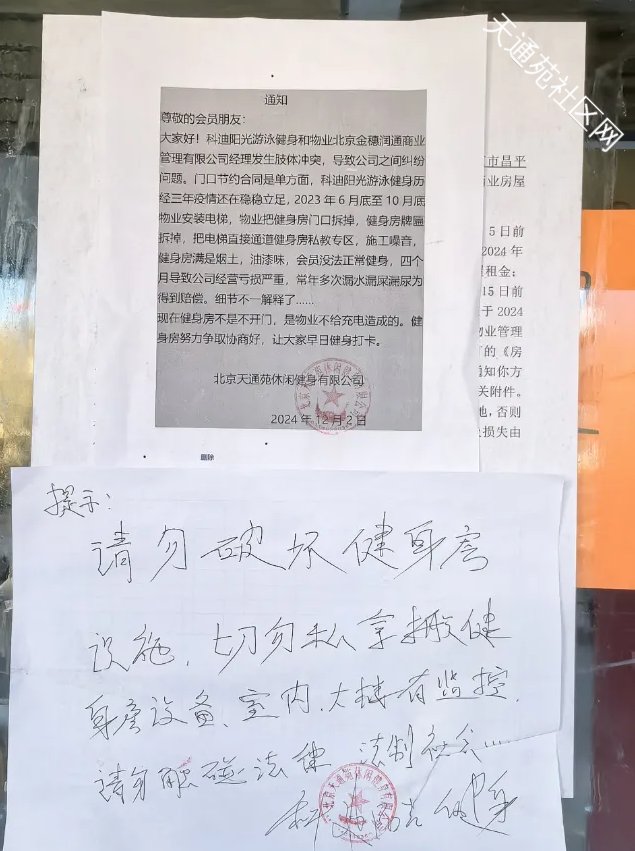 天通苑社区网
通知
尊敬的会员朋友：
大家好！科迪阳光游泳健身和物业北京金穗润通商业
管理有限公司经理发生肢体冲突，导致公司之间纠纷
问题。门口节约合同是单方面，科迪阳光游泳健身历
经三年疫情还在稳稳立足，2023年6月底至10月底
物业安装电梯，物业把健身房门口拆掉，健身房牌匾
拆掉，把电梯直接通道健身房私教专区，施工噪音，
健身房满是烟土，油漆味，会员没法正常健身，四个
月导致公司经营亏损严重，常年多次漏水漏尿漏尿为
得到赔偿。细节不一解释了……
现在健身房不是不开门，是物业不给充电造成的。健
身房努力争取协商好，让大家早日健身打卡。
北京天通苑休闲健身有限公司
2024年12月2日
删除
市昌平
业房屋
5日前
2024年
租金；
15日前
于2024
物业管理
的《房
通知你方
关附件。
地，否则
损失由
提示：
请勿破坏健身房
设施，切勿私拿搬健
身房设备、室内、大楼有监控，
请勿触碰法律 法制社会……
北京天通苑休闲健身有限公司
科迪阳光健身